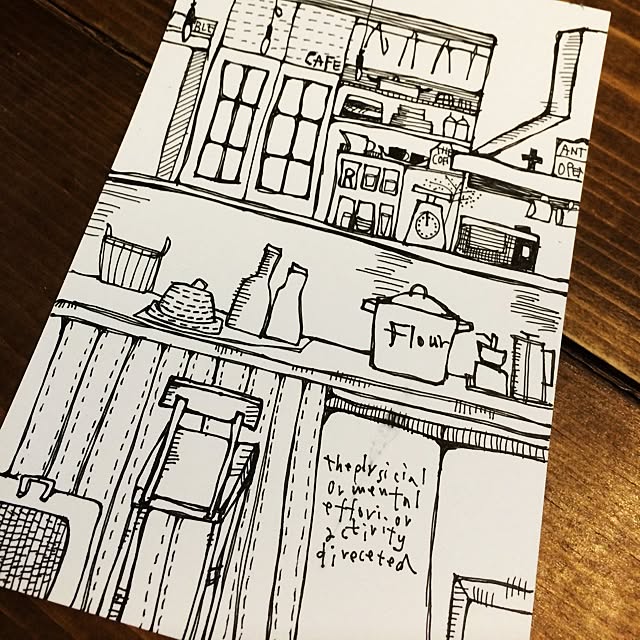 BLE
CAFE
THE
COFF
ANT
OPEN
Flour
the physicial
or mental
effori. or
actirity
direceted